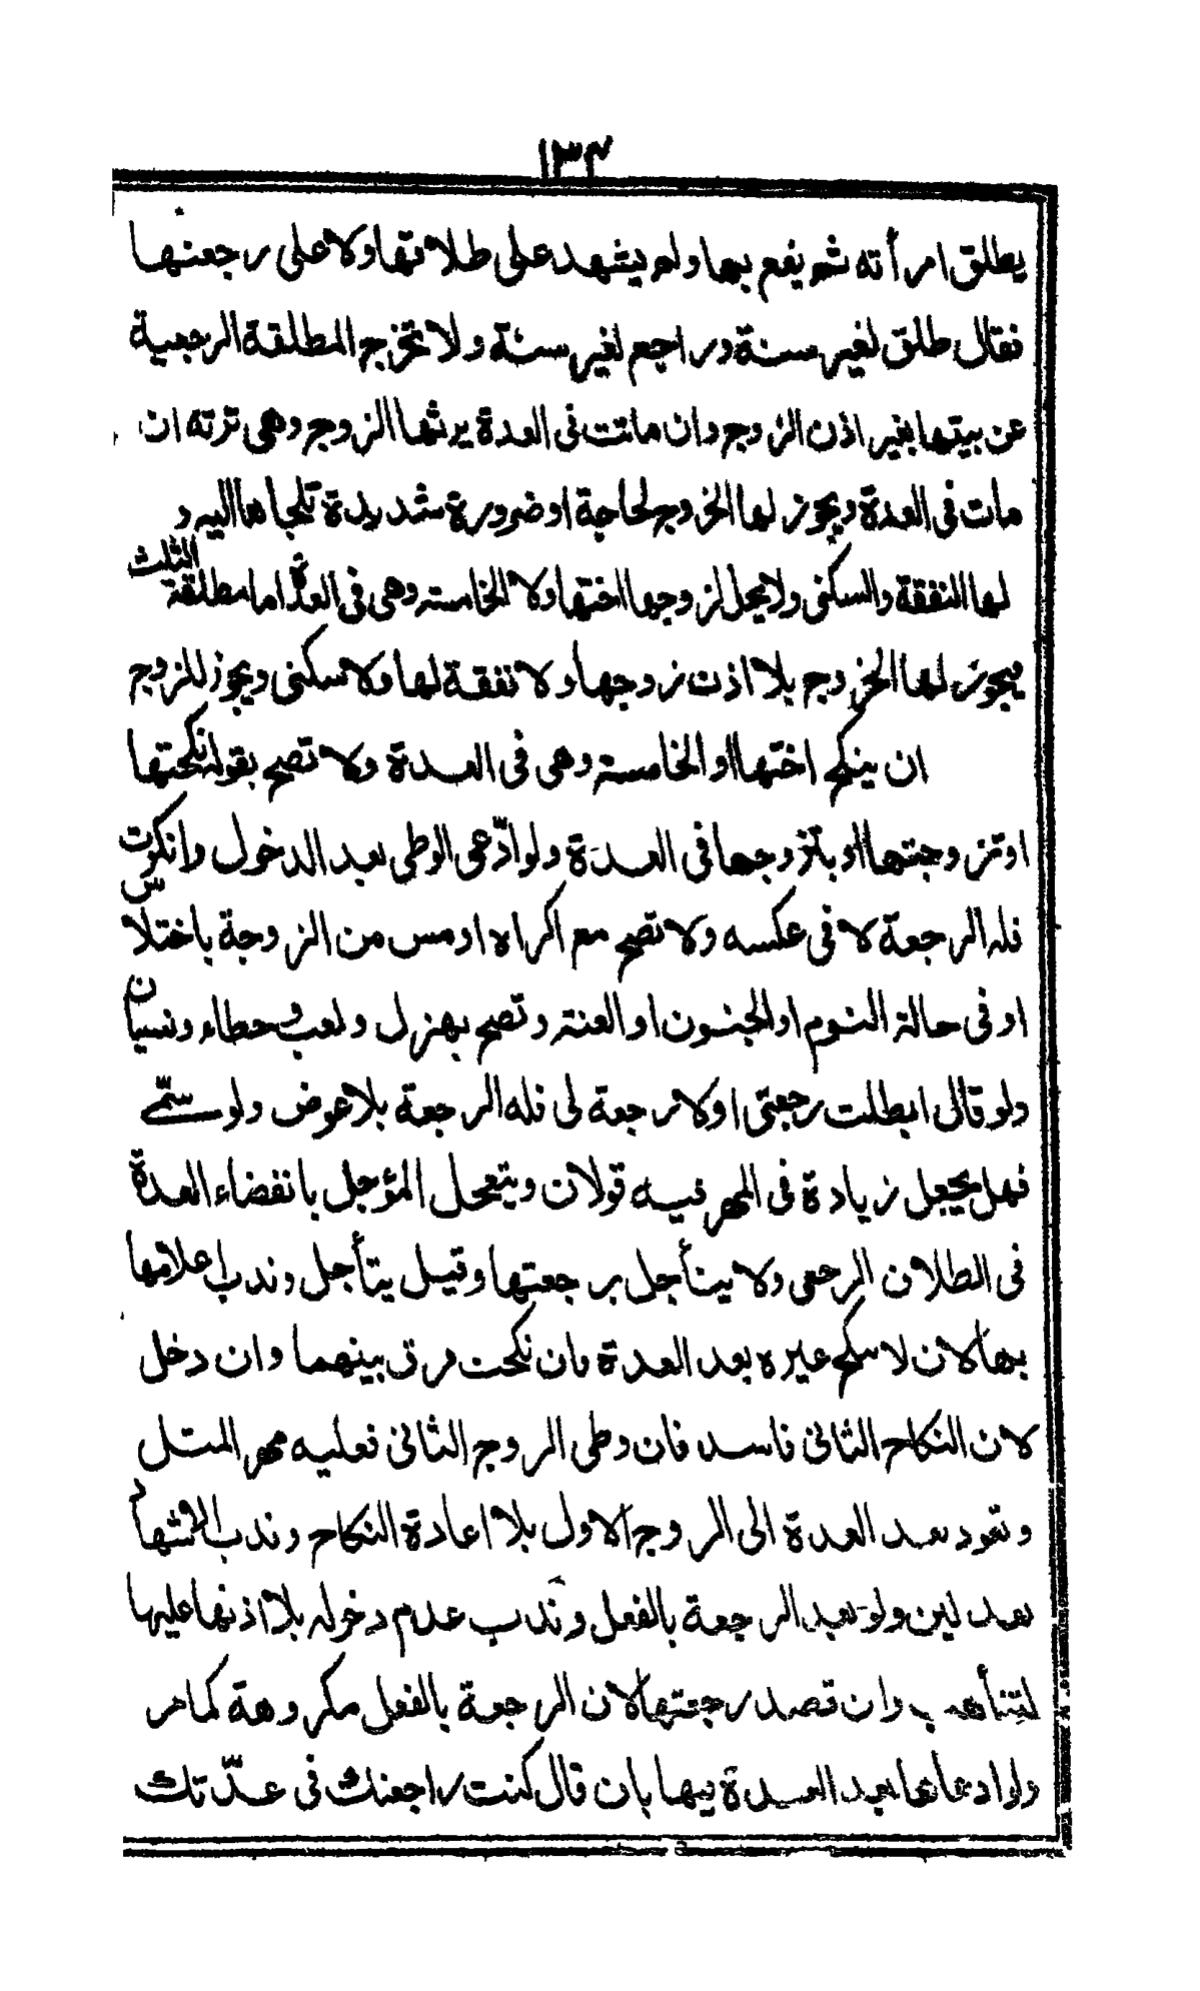 ١٣٣
يطلق امرأته ثم يقع بها ولم يشهد على طلاقها ولا على رجعتها
فقال طلق لغير سنة وراجع لغير سنة ولا تخرج المطلقة الرجعية
عن بيتها بغير اذن الزوج وان ماتت فى العدة يرثها الزوج وهى ترثه ان
مات فى العدة ويجوز لها الخروج لحاجة او ضرورة شديدة تلجاها اليه و
لها النفقة والسكنى ولا يحل لزوجها اختها ولا الخامسة وهى فى العدة اما مطلقة الثلث
فيجوز لها الخروج بلا اذن زوجها ولا نفقة لها ولا سكنى ويجوز للزوج
ان ينكح اختها او الخامسة وهى فى العدة ولا تصح بقوله نكحتها
او تزوجتها او بتزوجها فى العدة ولو ادّعى الوطى بعد الدخول وانكرت
فله الرجعة لا فى عكسه ولا تصح مع اكراه او مس من الزوجة باختلاس
او فى حالة النوم او الجنون او العته وتصح بهزل ولعب وخطاء ونسيان
ولو قال ابطلت رجعتى او لا رجعة لى فله الرجعة بلا عوض ولو سمّے
فهل يجعل زيادة فى المهر فيه قولان ويتعجل المؤجل بانقضاء العدة
فى الطلاق الرجعى ولا يتأجل برجعتها وقيل يتأجل وندب اعلامها
بها لان لا تنكح غيره بعد العدة فان نكحت فرق بينهما وان دخل
لان النكاح الثانى فاسد فان وطى الزوج الثانى فعليه مهر المثل
وتعود بعد العدة الى الزوج الاول بلا اعادة النكاح وندب الاشهاد
بعد لين ولو بعد الرجعة بالفعل وندب عدم دخوله بلا اذنها عليها
لتتأهب وان قصد رجعتها لان الرجعة بالفعل مكروهة كما مر
ولو ادعاها بعد العدة فيها بان قال كنت راجعتك فى عدّتك